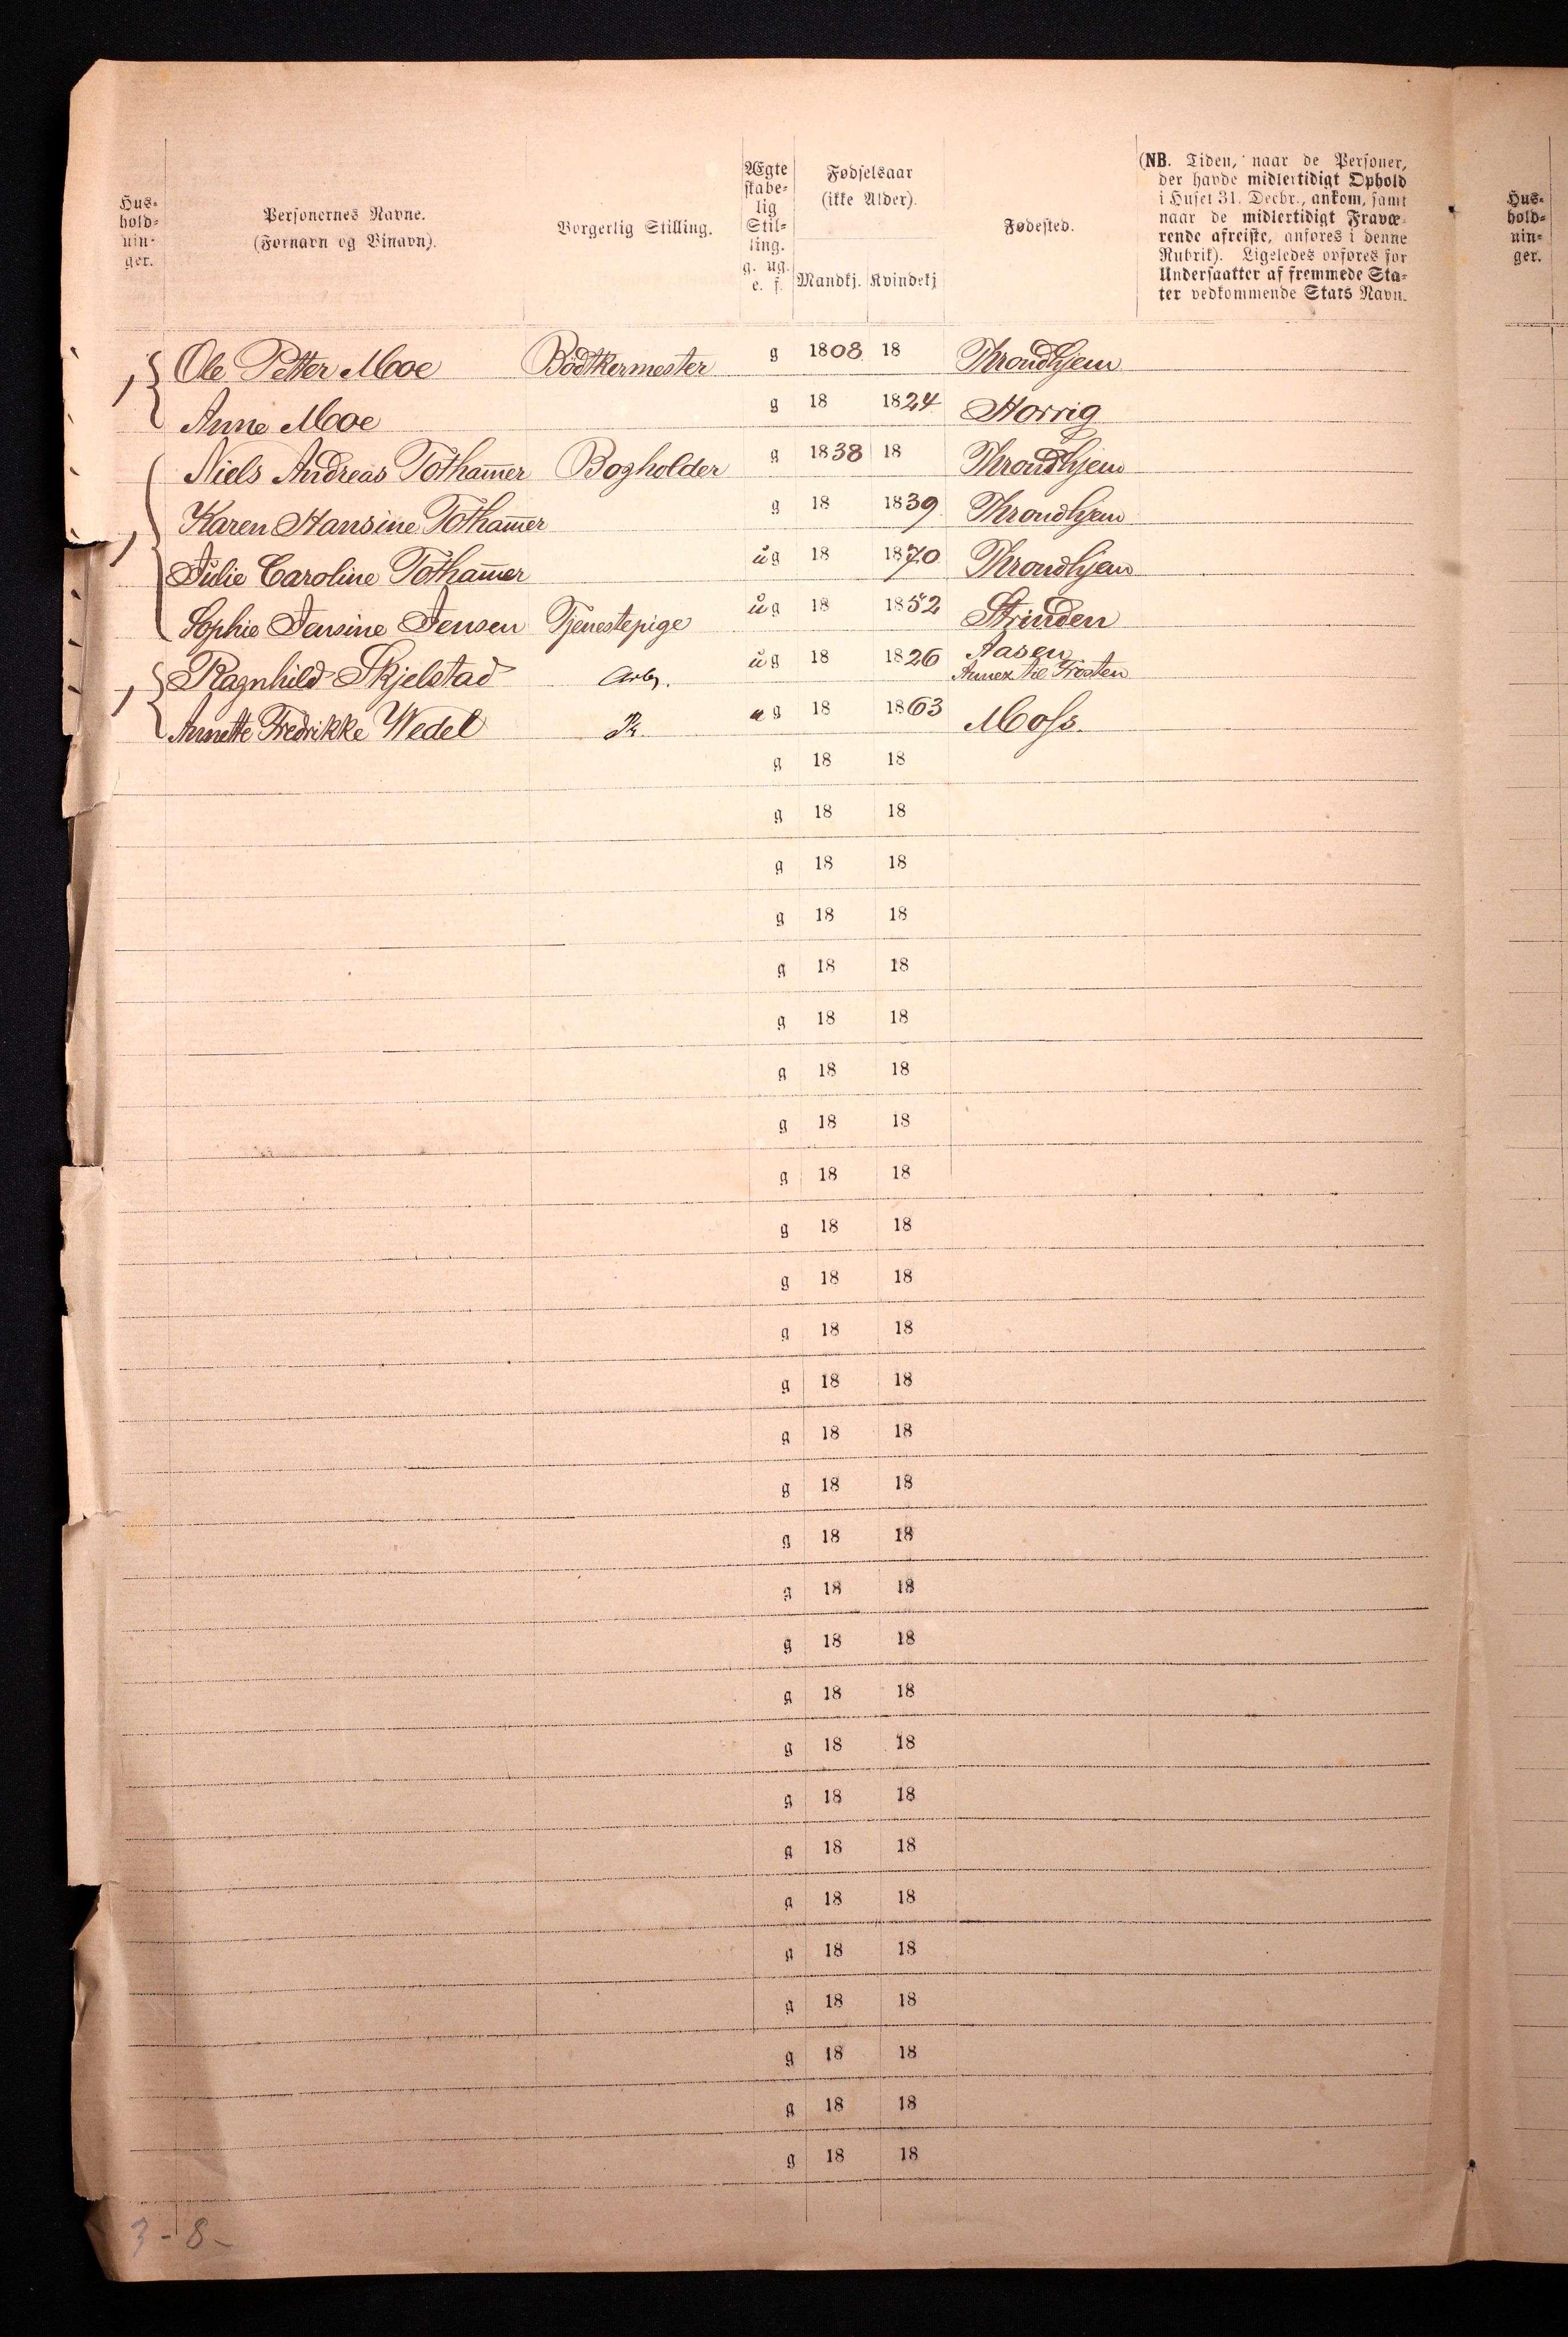 Hus-
hold-
nin-
ger.
Personernes Navne.
(Fornavn og Binavn).
Borgerlig Stilling.
Ægte
skabe-
lig
Stil-
ling.
g. ug.
e. f.
Fødselsaar
(ikke Alder).
Mandkj. Kvindekj
Fødested.
(NB. Tiden, naar de Personer,
der havde midlertidigt Ophold
i Huset 31. Decbr., ankom, samt
naar de midlertidigt Fravæ-
rende afreiste, anføres i denne
Rubrik). Ligeledes opføres for
Undersaatter af fremmede Sta-
ter vedkommende Stats Navn.
Hus-
hold-
nin-
ger.
1 Ole Petter Moe Bödtkermester g 1808 18 Throndhjem
Anne Moe g 18 1824 Horrig
1 Niels Andreas Tothammer Bogholder g 1838 18 Throndhjem
Karen Hansine Tothammer g 18 1839 Throndhjem
Julie Caroline Tothammer ug 18 1870 Throndhjem
Sophie Jensine Jensen Tjenestepige ug 18 1852 Strinden
1 Ragnhild Skjelstad Arb. ug 18 1826 Aasen
Annex til Frosten
Annette Fredrikke Wedel ug 18 1863 Moss.
g 18 18
g 18 18
g 18 18
g 18 18
g 18 18
g 18 18
g 18 18
g 18 18
g 18 18
g 18 18
g 18 18
g 18 18
g 18 18
g 18 18
g 18 18
g 18 18
g 18 18
g 18 18
g 18 18
g 18 18
g 18 18
g 18 18
g 18 18
g 18 18
g 18 18
g 18 18
g 18 18
g 18 18
3 - 8 -